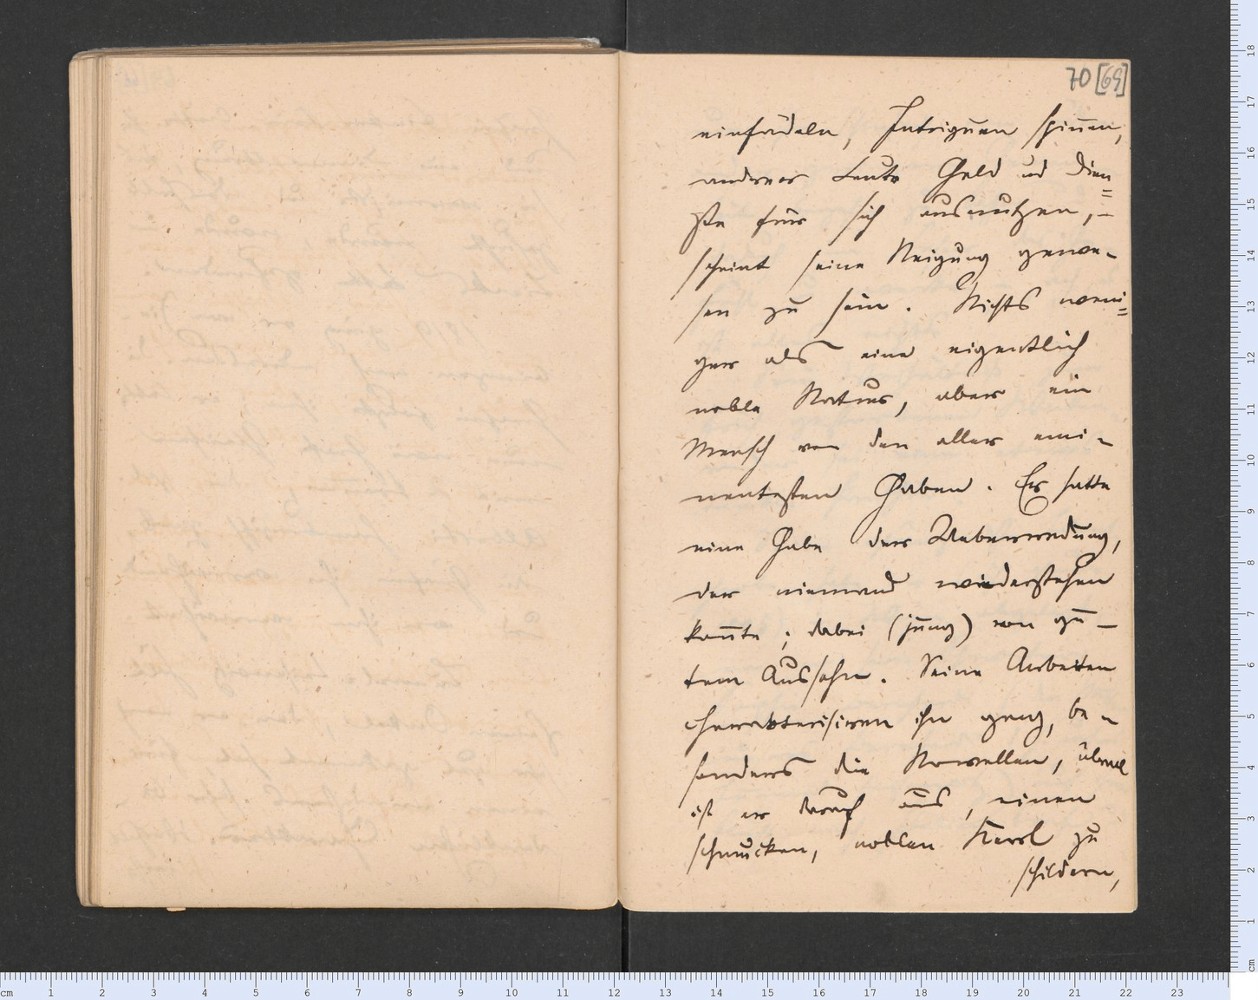 70 [69]
einfädeln, Intriguen spinnen,
anderer Leute Geld und Dien=
ste für sich ausnutzen, –
scheint seine Neigung gewe-
sen zu sein. Nichts weni=
ger als eine eigentlich
noble Natur, aber ein
Mensch von den aller emi-
nentesten Gaben. Er hatte
eine Gabe der Ueberredung,
der niemand wiederstehen
konnte; dabei (jung) von gu-
tem Aussehn. Seine Arbeiten
charakterisiren ihn ganz, be-
sonders die Novellen, überall
ist er darauf aus, einen
schmucken, noblen Kerl zu
schildern,